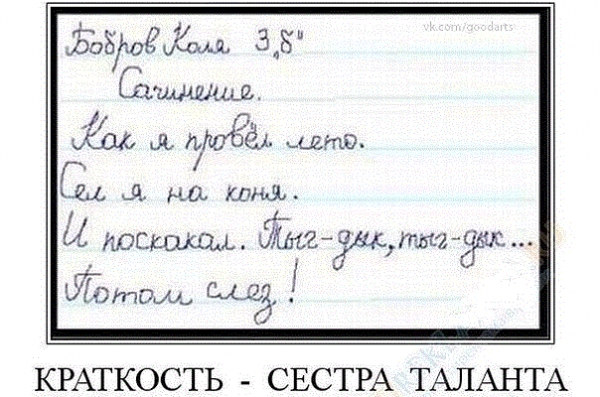 vk.com/goodarts
Бобров Коля 3 „б"
Сочинение.
Как я провёл лето.
Сел я на коня.
И поскакал. Тыг-дык, тыг-дык...
Потом слез!
КРАТКОСТЬ - СЕСТРА ТАЛАНТА